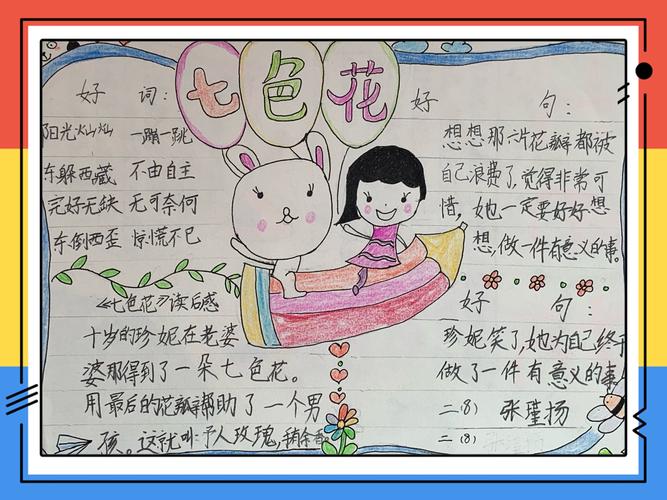 七色花
好 词：
阳光灿灿 一蹦一跳
东躲西藏 不由自主
完好无缺 无可奈何
东倒西歪 惊慌不已
《七色花》读后感
十岁的珍妮在老婆
婆那得到了一朵七色花。
用最后的花瓣帮助了一个男
孩。这就叫：予人玫瑰，
好 句：
想想那六片花瓣都被
自己浪费了，觉得非常可
惜，她一定要好好想
想，做一件有意义的事。
好 句：
珍妮笑了，她为自己终于
做了一件有意义的事
二（8） 张瑾扬
二（8）